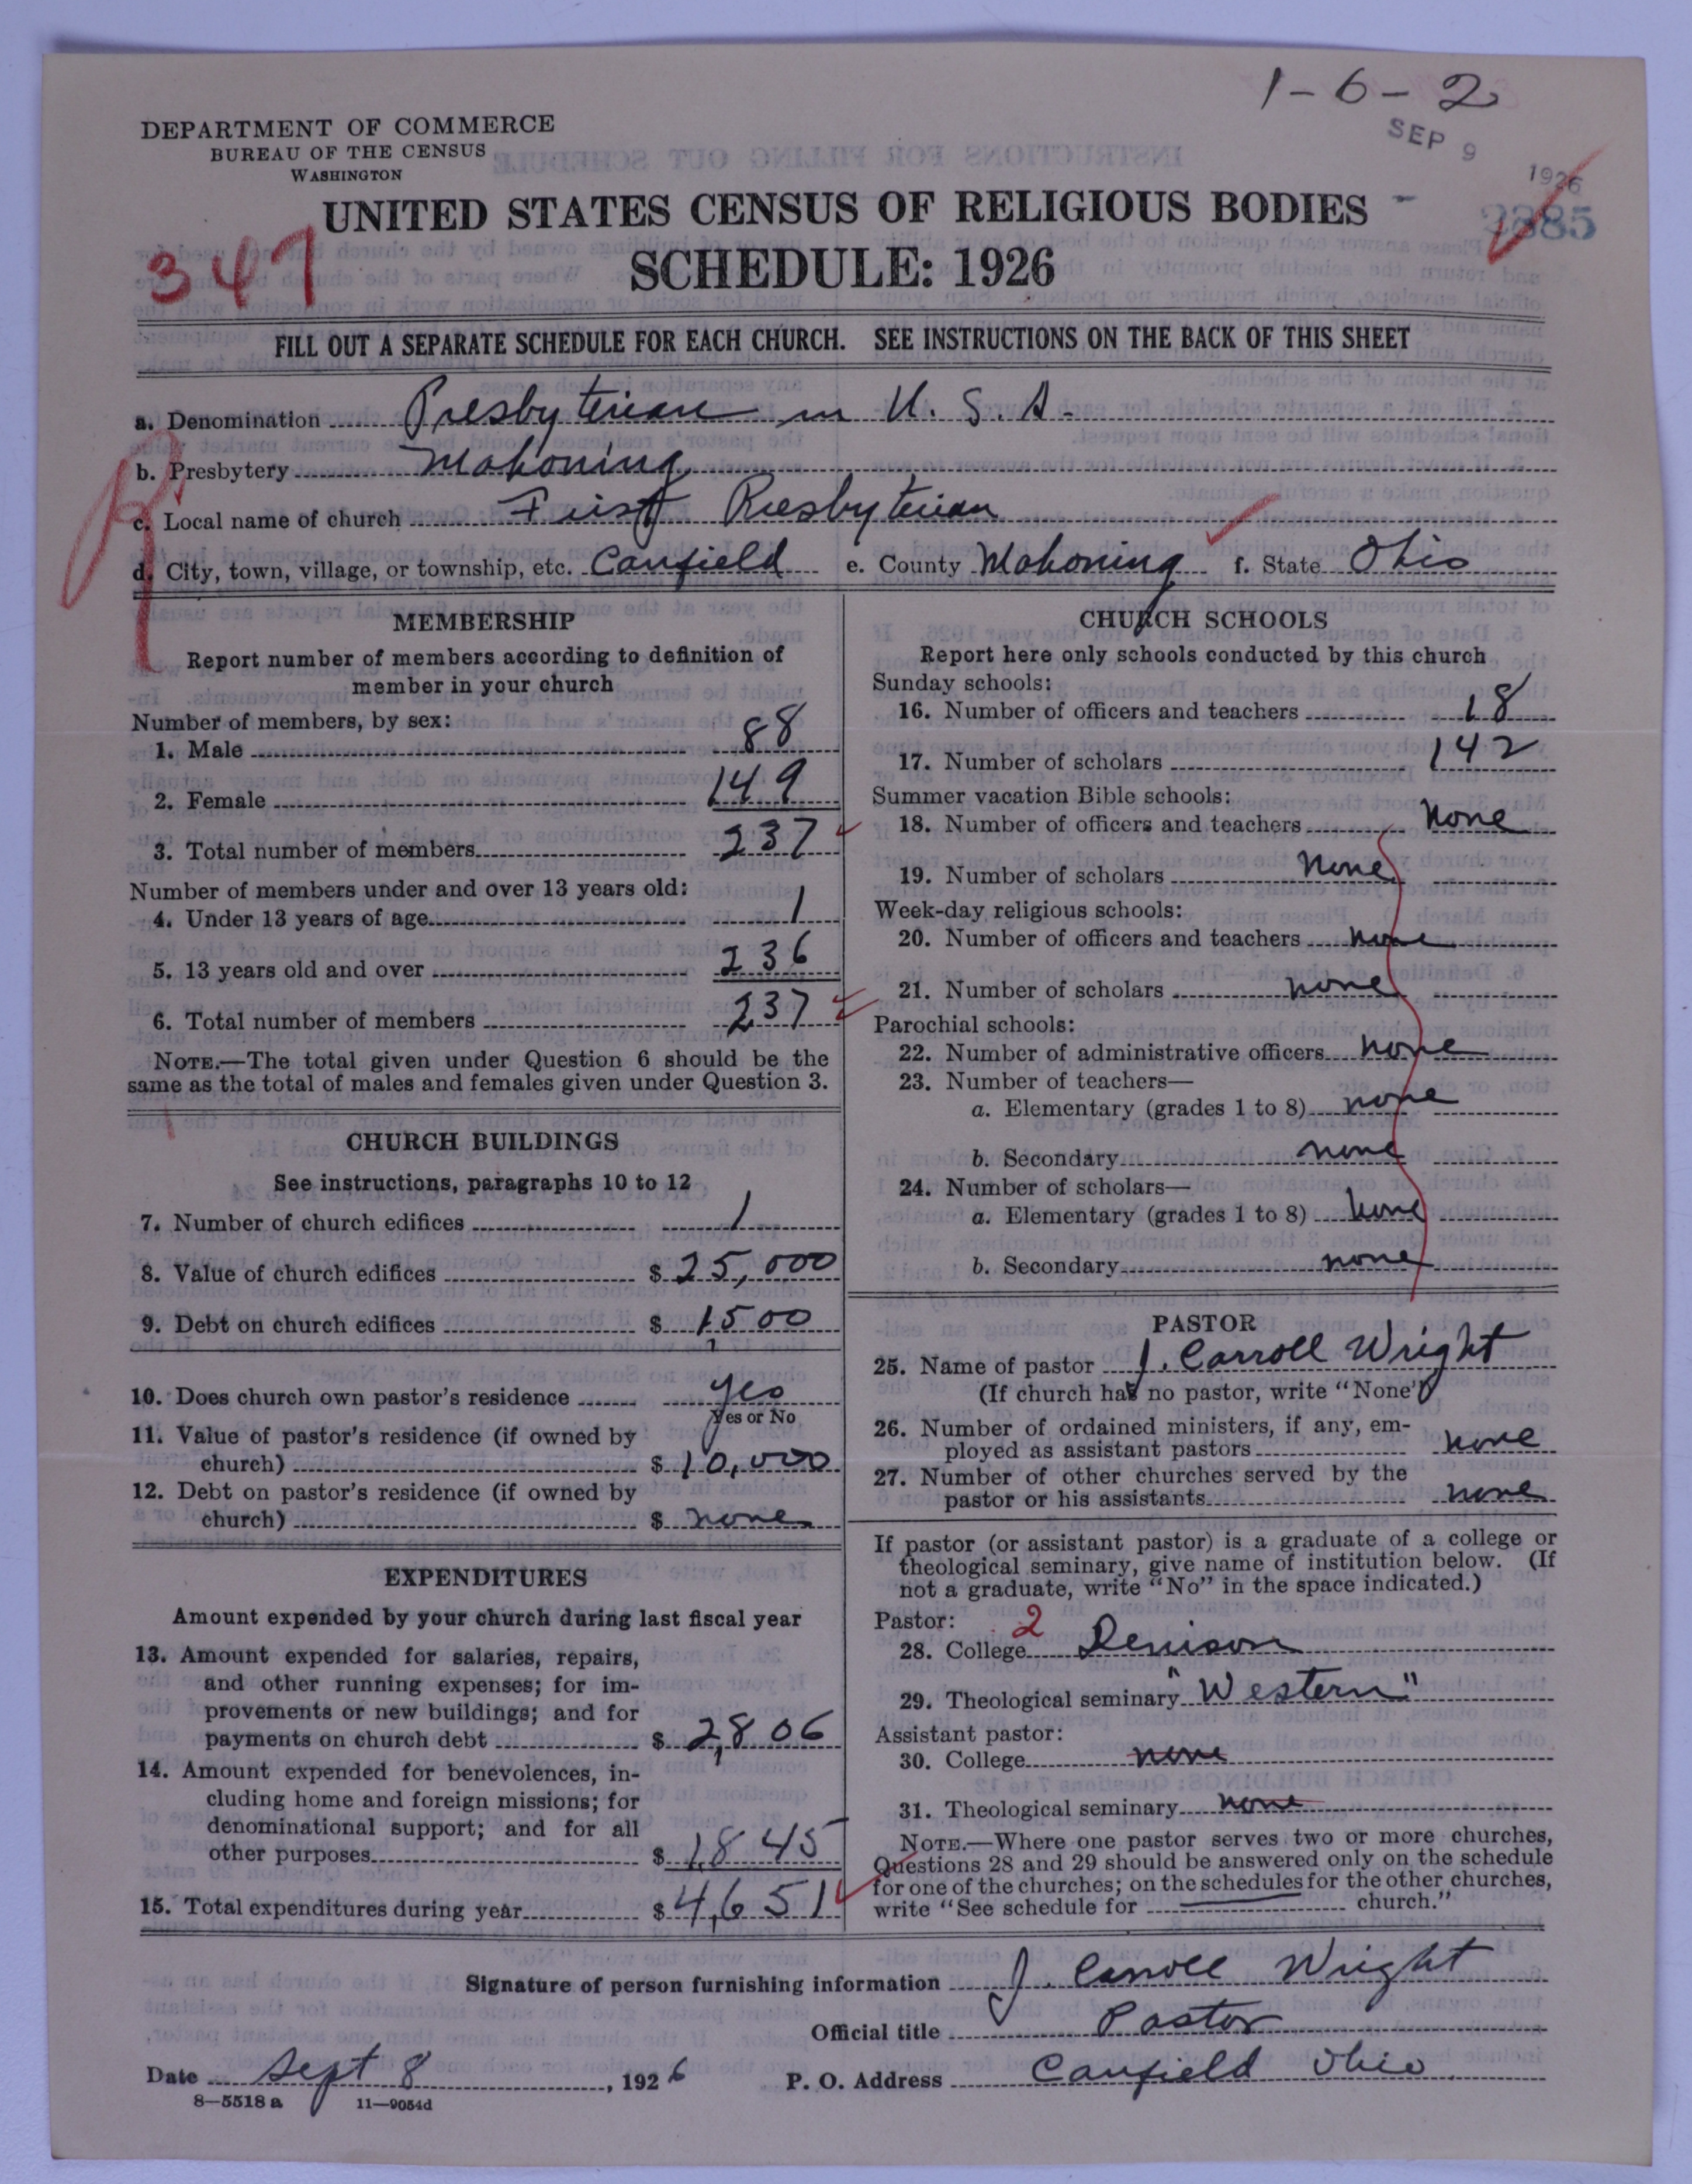 1-6-2
SEP 9 1926
DEPARTMENT OF COMMERCE
BUREAU OF THE CENSUS
WASHINGTON
UNITED STATES CENSUS OF RELIGIOUS BODIES
2385
347
SCHEDULE: 1926
FILL OUT A SEPARATE SCHEDULE FOR EACH CHURCH. SEE INSTRUCTIONS ON THE BACK OF THIS SHEET
a. Denomination Presbyterian in U. S. A.
b. Presbytery Mahoning
c. Local name of church First Presbyterian
d. City, town, village, or township, etc. Canfield e. County Mahoning f. State Ohio
MEMBERSHIP
Report number of members according to definition of
member in your church
Number of members, by sex:
1. Male 88
2. Female 149
3. Total number of members 237
Number of members under and over 13 years old:
4. Under 13 years of age 1
5. 13 years old and over 236
6. Total number of members 237
NOTE.—The total given under Question 6 should be the
same as the total of males and females given under Question 3.
CHURCH BUILDINGS
See instructions, paragraphs 10 to 12
7. Number of church edifices 1
8. Value of church edifices $ 25,000
9. Debt on church edifices $ 1,500
10. Does church own pastor's residence yes
Yes or No
11. Value of pastor's residence (if owned by
church) $ 10,000
12. Debt on pastor's residence (if owned by
church) $ none
EXPENDITURES
Amount expended by your church during last fiscal year
13. Amount expended for salaries, repairs,
and other running expenses; for im-
provements or new buildings; and for
payments on church debt $ 2,806
14. Amount expended for benevolences, in-
cluding home and foreign missions; for
denominational support; and for all
other purposes $ 1,845
15. Total expenditures during year $ 4,651
CHURCH SCHOOLS
Report here only schools conducted by this church
Sunday schools:
16. Number of officers and teachers 18
17. Number of scholars 142
Summer vacation Bible schools:
18. Number of officers and teachers none
19. Number of scholars none
Week-day religious schools:
20. Number of officers and teachers none
21. Number of scholars none
Parochial schools:
22. Number of administrative officers none
23. Number of teachers—
a. Elementary (grades 1 to 8) none
b. Secondary none
24. Number of scholars—
a. Elementary (grades 1 to 8) none
b. Secondary none
PASTOR
25. Name of pastor J. Carroll Wright
(If church has no pastor, write "None")
26. Number of ordained ministers, if any, em-
ployed as assistant pastors none
27. Number of other churches served by the
pastor or his assistants none
If pastor (or assistant pastor) is a graduate of a college or
theological seminary, give name of institution below. (If
not a graduate, write "No" in the space indicated.)
Pastor: 2
28. College Denison
29. Theological seminary "Western"
Assistant pastor:
30. College none
31. Theological seminary none
NOTE.—Where one pastor serves two or more churches,
Questions 28 and 29 should be answered only on the schedule
for one of the churches; on the schedules for the other churches,
write "See schedule for church."
Signature of person furnishing information J. Carroll Wright
Official title Pastor
Date Sept 8, 1926 P. O. Address Canfield Ohio
8—5518 a 11—9054d